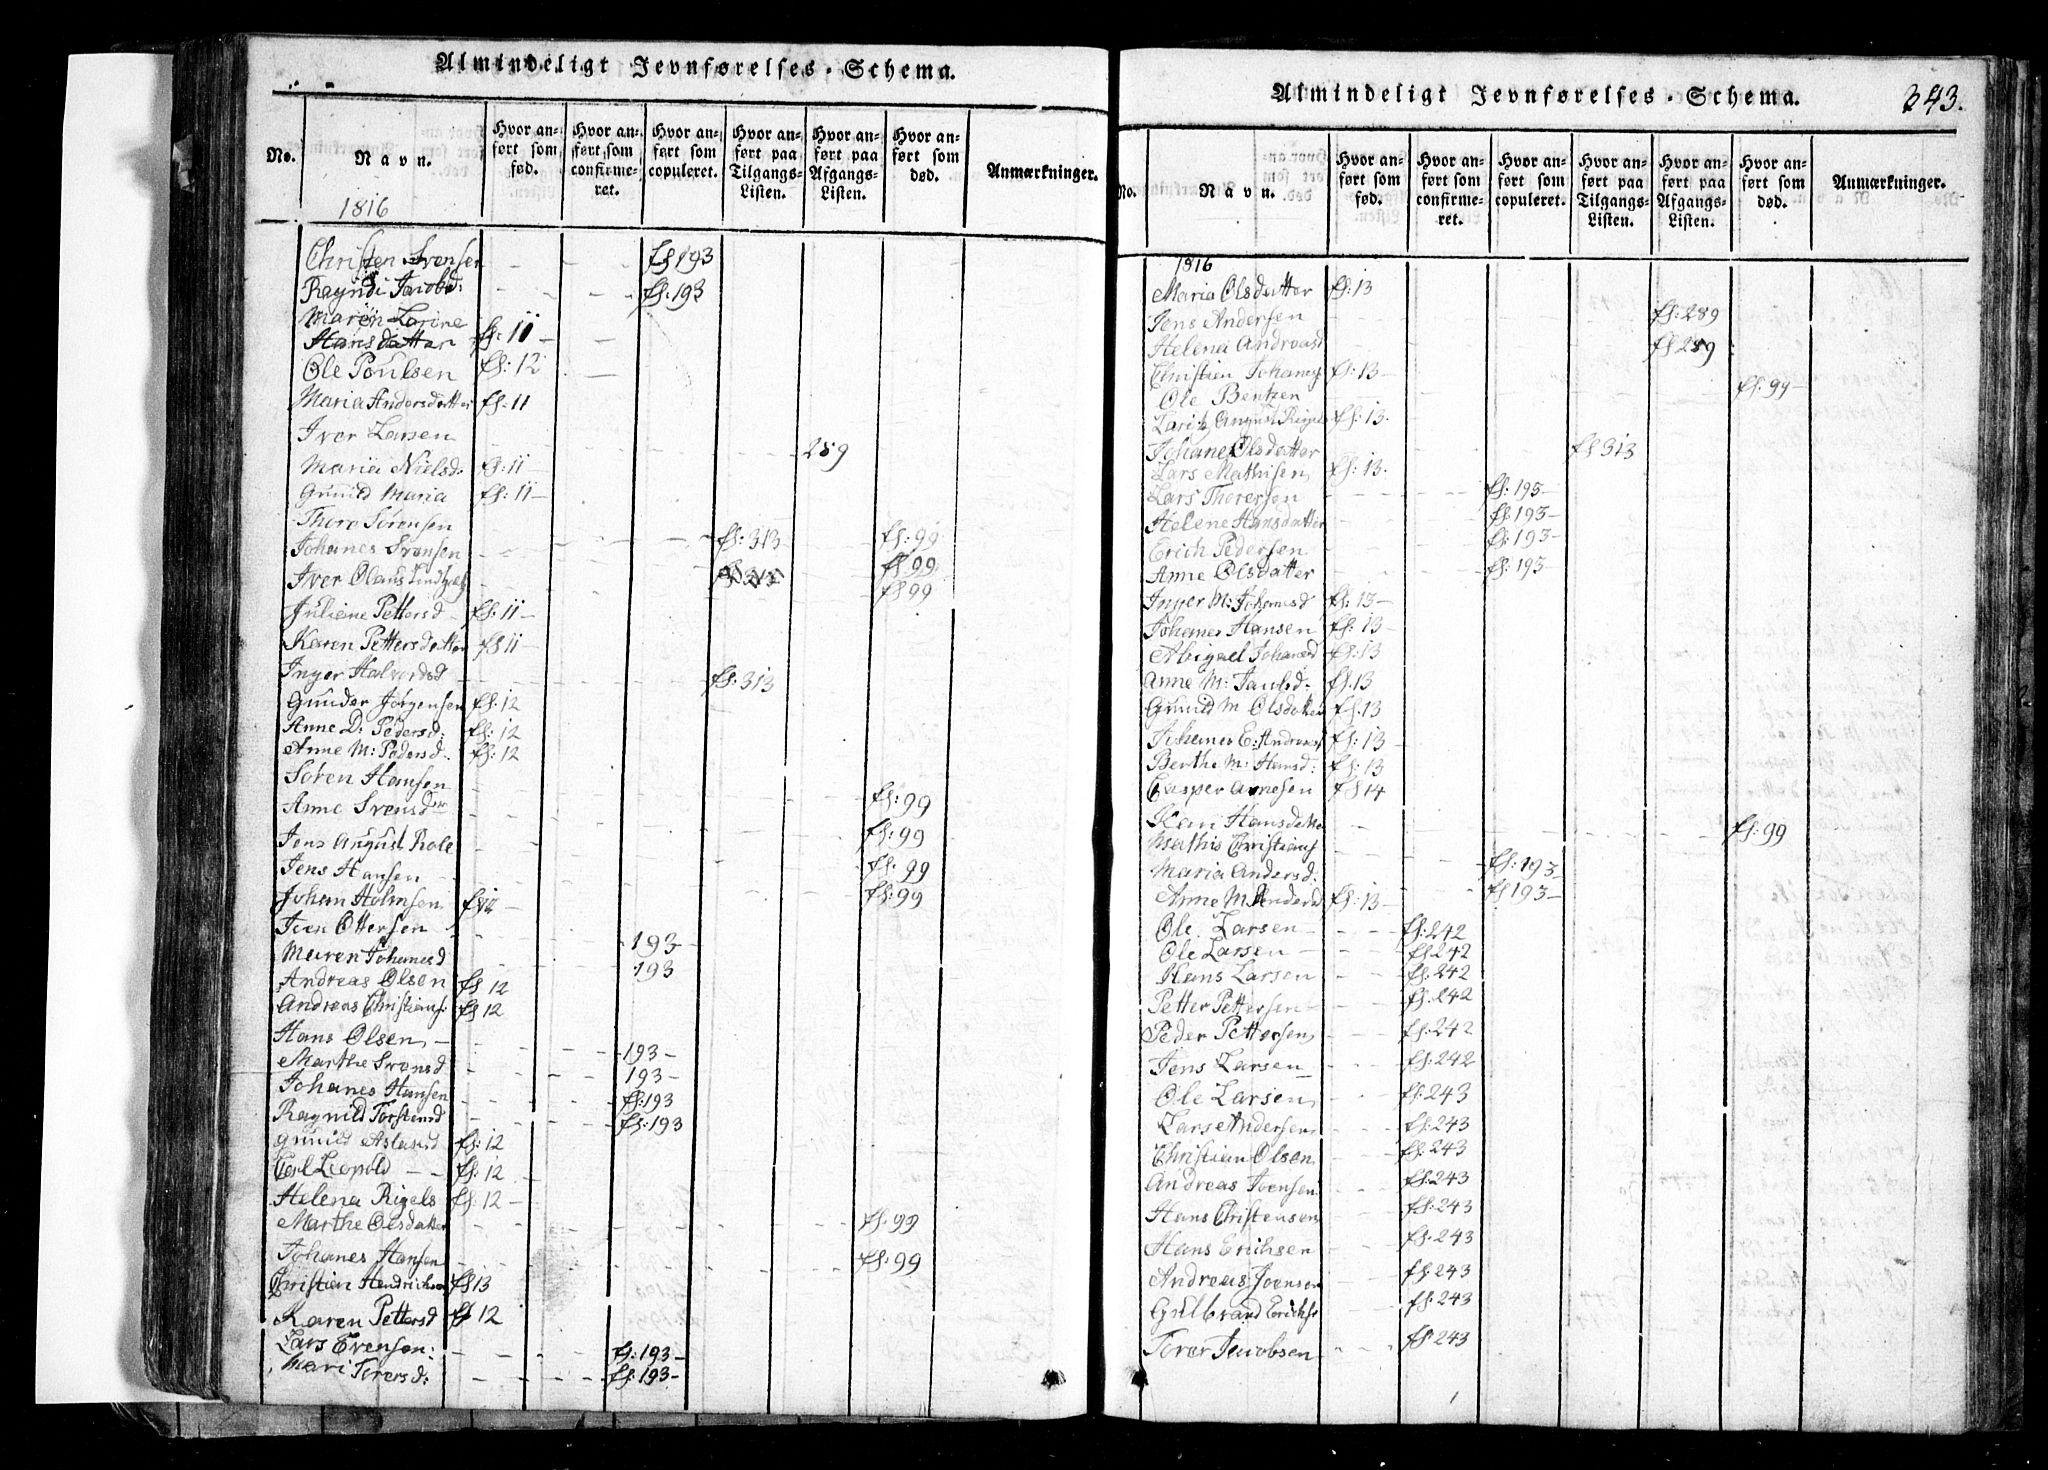 Almindeligt Jevnførelses-Schema.
No. Navn. Hvor anført som fød. Hvor anført som confirmeret. Hvor anført som copuleret. Hvor anført paa Tilgangs-Listen. Hvor anført paa Afgangs-Listen. Hvor anført som død. Anmærkninger.
1816
Christen Svensen - - fs 193
Ragndi Jacobd: - - - fs: 193
Maren Larine
Hansdatter fs: 11 -
Ole Poulsen fs: 12
Maria Andersdatter fs: 11
Iver Larsen - - - - 289
Maria Nielsd. fs: 11 -
Gunild Maria fs: 11 -
Thore Sörensen
Johanes Svensen - - - fs: 313 - fs: 99
Iver Olaus - - - fs 99
fs 99
Juliene Pettersd - fs: 11 -
Karen Pettersdatter fs 11
Inger Halvordsd - - - fs: 313
Gunder Jörgensen fs: 12
Anne D. Pedersd: fs: 12
Anne M: Pedersd. fs: 12
Sören Hansen
Anne Svensdtr - - - - - fs: 99
Jens August Role - - - - - fs: 99
Jens Hansen - - - - - fs: 99
Johan Holmsen - - - - fs: 99
Iven Ottersen -
Maren Johanesd - - 193 -
Andreas Olsen fs 12 193
Andreas Christians: fs 12
Hans Olsen -
Marthe Svensd - - - 193 -
Johanes Hansen - - 193 -
Ragnild Torstensd - - - fs: 193
Gunild Aslausd fs: 12 - - fs: 193
Carl Leopold - - fs: 12
Helena Rigels fs: 12 -
Marthe Olsdatter - - - - - fs: 99
Johanes Hansen - - - - - fs: 99
Christien Hendrichsen fs 13
Karen Pettersd fs 12
Lars Evensen: - - - fs: 193 -
Mari Torersd: - - - fs: 193 -
Almindeligt Jevnførelses-Schema. 343.
No. Navn. Hvor anført som fød. Hvor anført som confirmeret. Hvor anført som copuleret. Hvor anført paa Tilgangs-Listen. Hvor anført paa Afgangs-Listen. Hvor anført som død. Anmærkninger.
1816
Maria Olsdatter fs: 13
Jens Andersen - - - - fs: 289
Helena Andreasd - - - - fs 289
Christien Johans fs: 13 -
Ole Bentzen - - - - - fs: 99 -
August fs: 13.
Johane Olsdatter - - - fs 313
Lars Mathisen fs: 13.
Lars Thoresen - - - fs: 193 -
Helene Hansdatter - - - fs 193 -
Erich Pedersen - - - fs: 193 -
Anne Olsdatter - - - fs: 193
Inger M: Johanesd fs: 13 -
Johanes Hansen fs: 13 -
Abigael Johanesd fs: 13
Anne M: Paulsd. fs. 13
Gunild M Olsdatter fs. 13
Johanes E: Andreas fs: 13 -
Berthe M: Hansd: fs: 13
Casper Arnesen fs 14
Kari Hansdatter - - - - - fs: 99
Mathis Christians
Maria Andersd: - - fs: 193 -
Anne M. Andersd fs: 13 - - fs 193 -
Ole. Larsen - - - fs: 242
Ole Larsen - - - fs 242
Hans Larsen - - fs: 242
Petter Pettersen - fs: 242
Peder Pettersen - - fs: 242
Jens Larsen - - fs: 242
Ole Larsen - - fs: 243
Lars Andersen - - fs: 243
Christien Olsen - - fs: 243
Andreas Joensen. - - fs. 243
Hans Christensen - - fs. 243
Hans Erichsen - - fs: 243
Andreas Joensen - - fs. 243
Gulbrand Erichs - - fs: 243
Torer Jacobsen - - fs 243